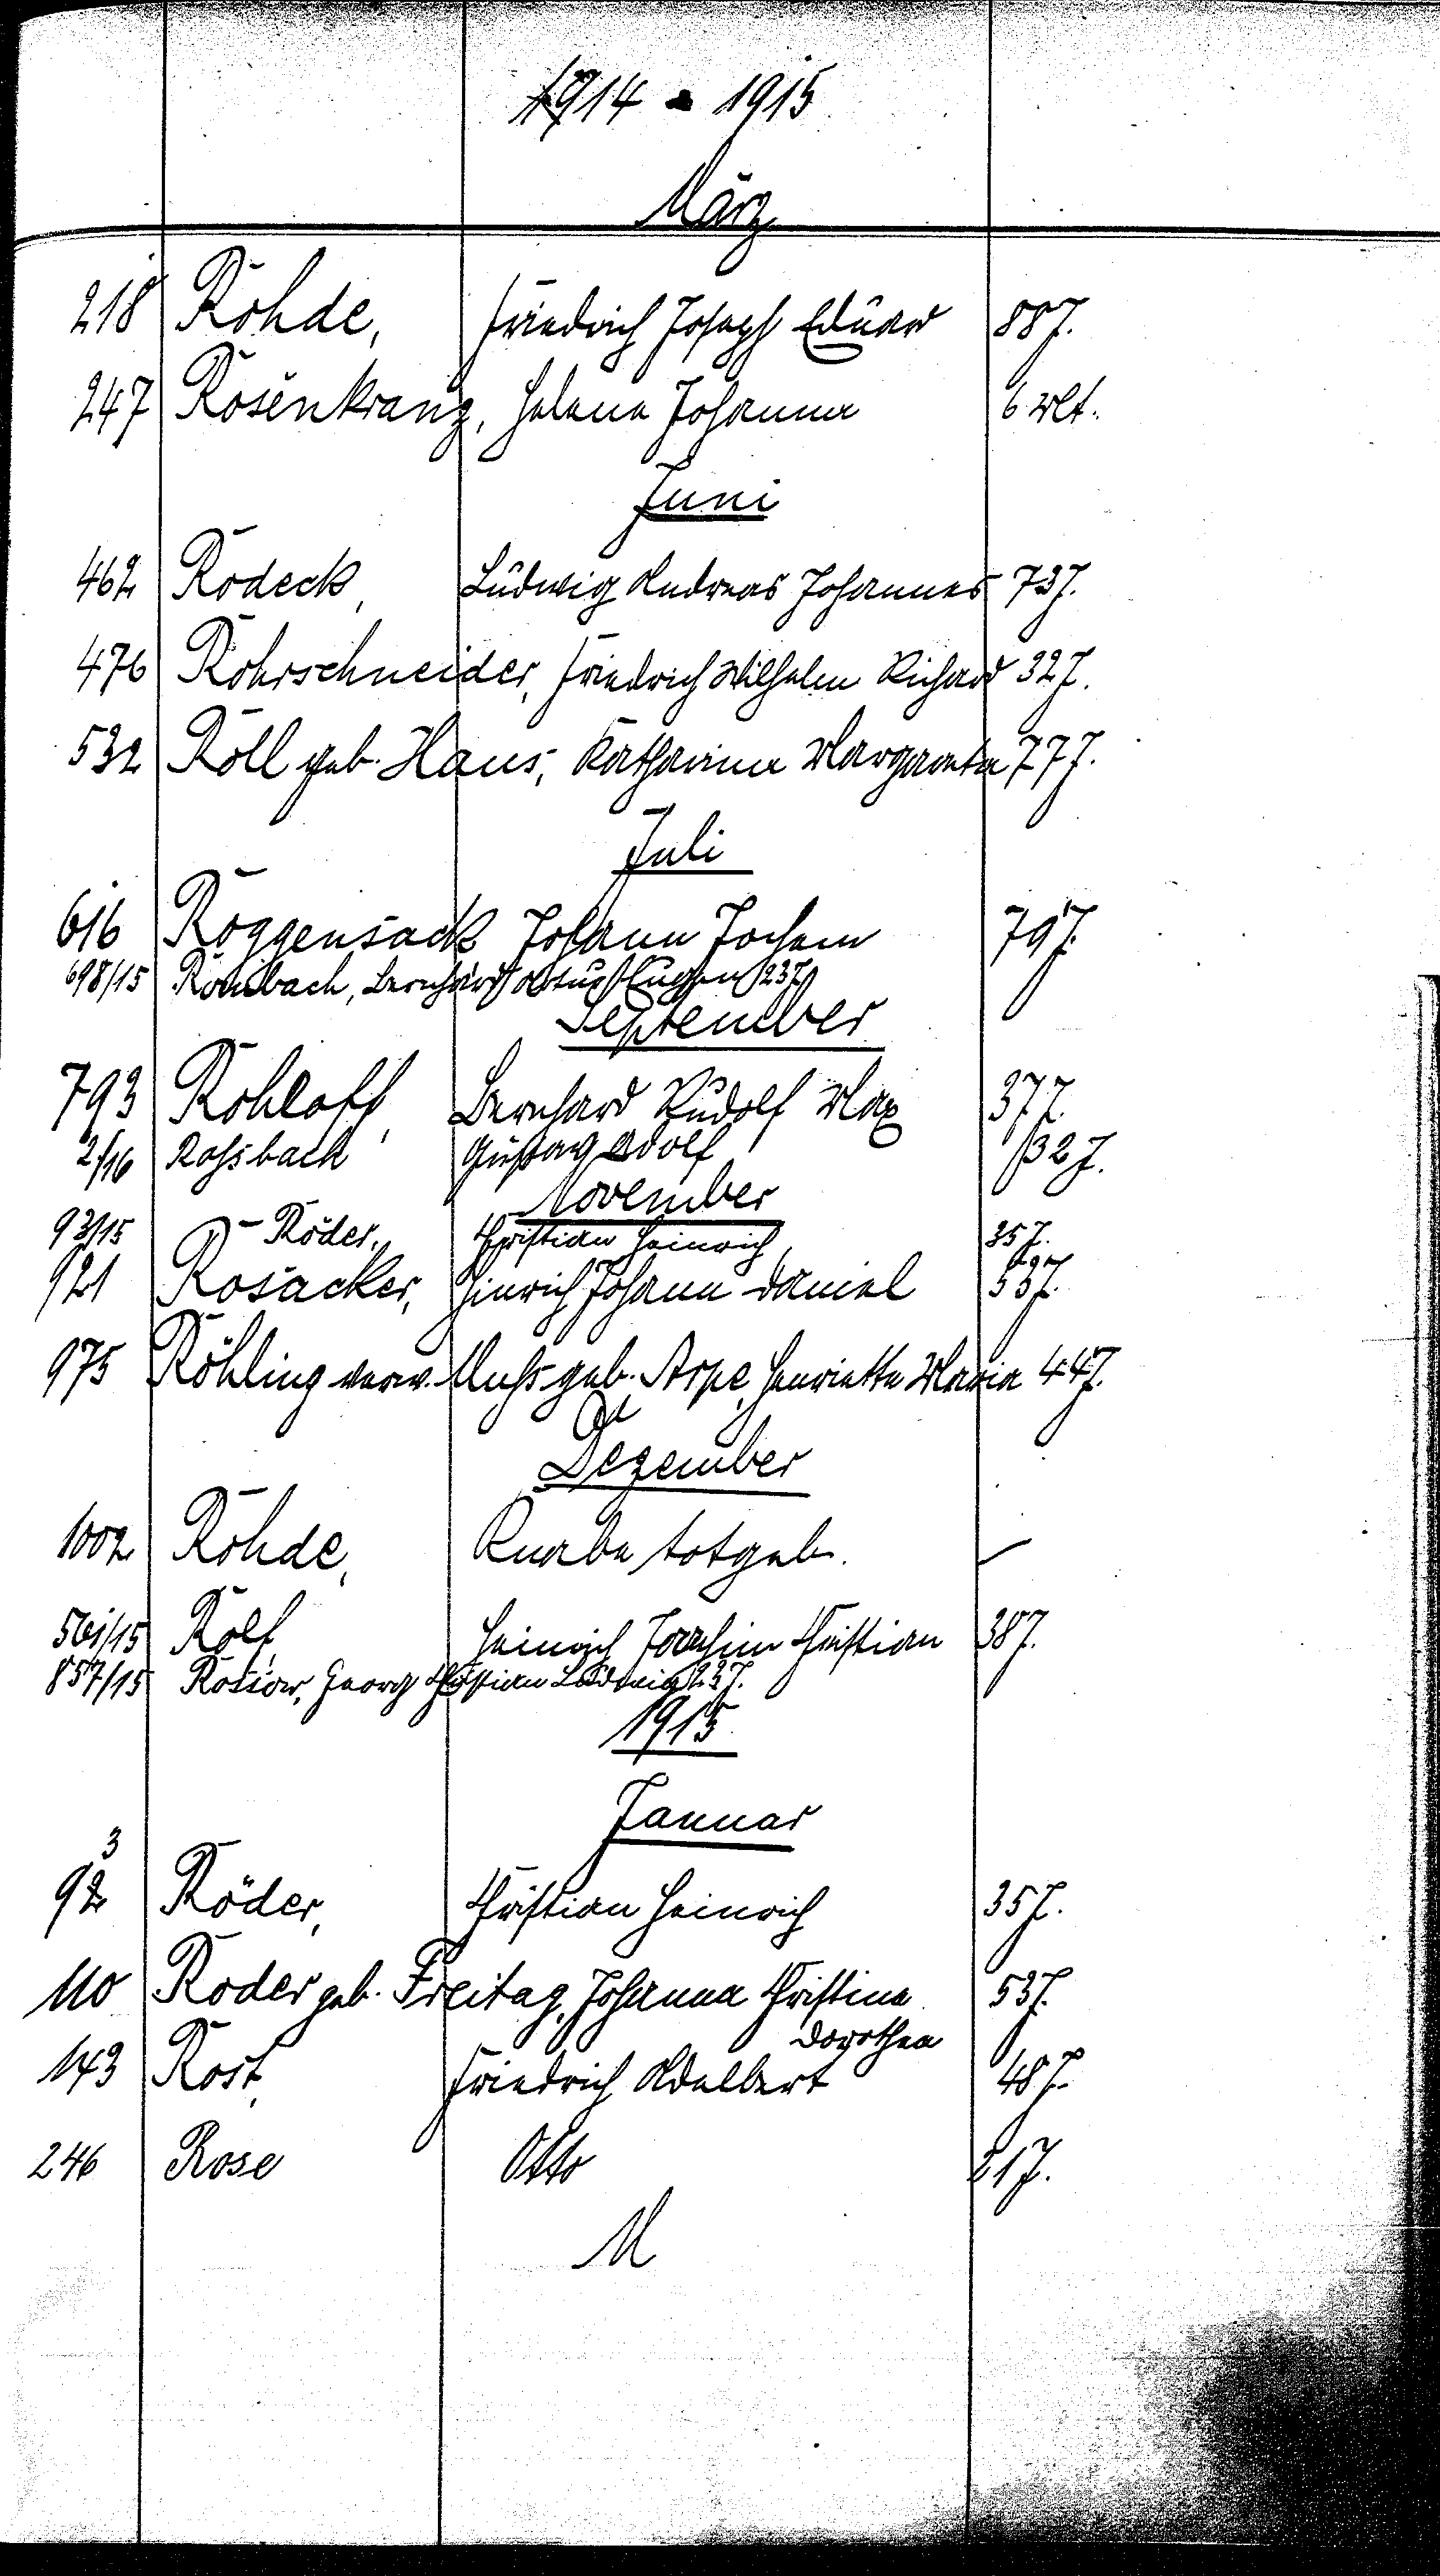 1914 - 1915
März
218 Rohde, Friedrich Joseph Eduard 88J.
247 Rosenkranz, Helene Johanna 6 Mt.
Juni
462 Rodeck, Ludwig Andreas Johannes 73J.
476 Rohrschneider, Friedrich Wilhelm Richard 32J.
532 Röll geb. Haus, Katharina Margareta 77J.
Juli
616 Roggensack Johann Jochem 79J.
698/15 Rombach, Bernhard Eugen 23J.
September
793 Rohloff, Bernhard Rudolf Max 37J.
2/16 Rossbach Gustav Adolf 32J.
November
93/15 Röder, Christian Heinrich, 35J.
921 Rosacker, Hinrich Johann Daniel 55J.
975 Röhling verw. geb. Arpe, Henriette Maria 44J.
Dezember
1002 Rohde, Knabe totgeb. —
561/15 Rolf, Heinrich Joachim Christian 38J.
857/15 Rossow, Georg Christian Ludwig 23J.
1915
Januar
3
92 Röder, Christian Heinrich 35J.
110 Roder geb. Freitag, Johanna Christine 53J.
Dorothea
143 Rost, Friedrich Adelbert 48J.
246 Rose Otto 21J.
M